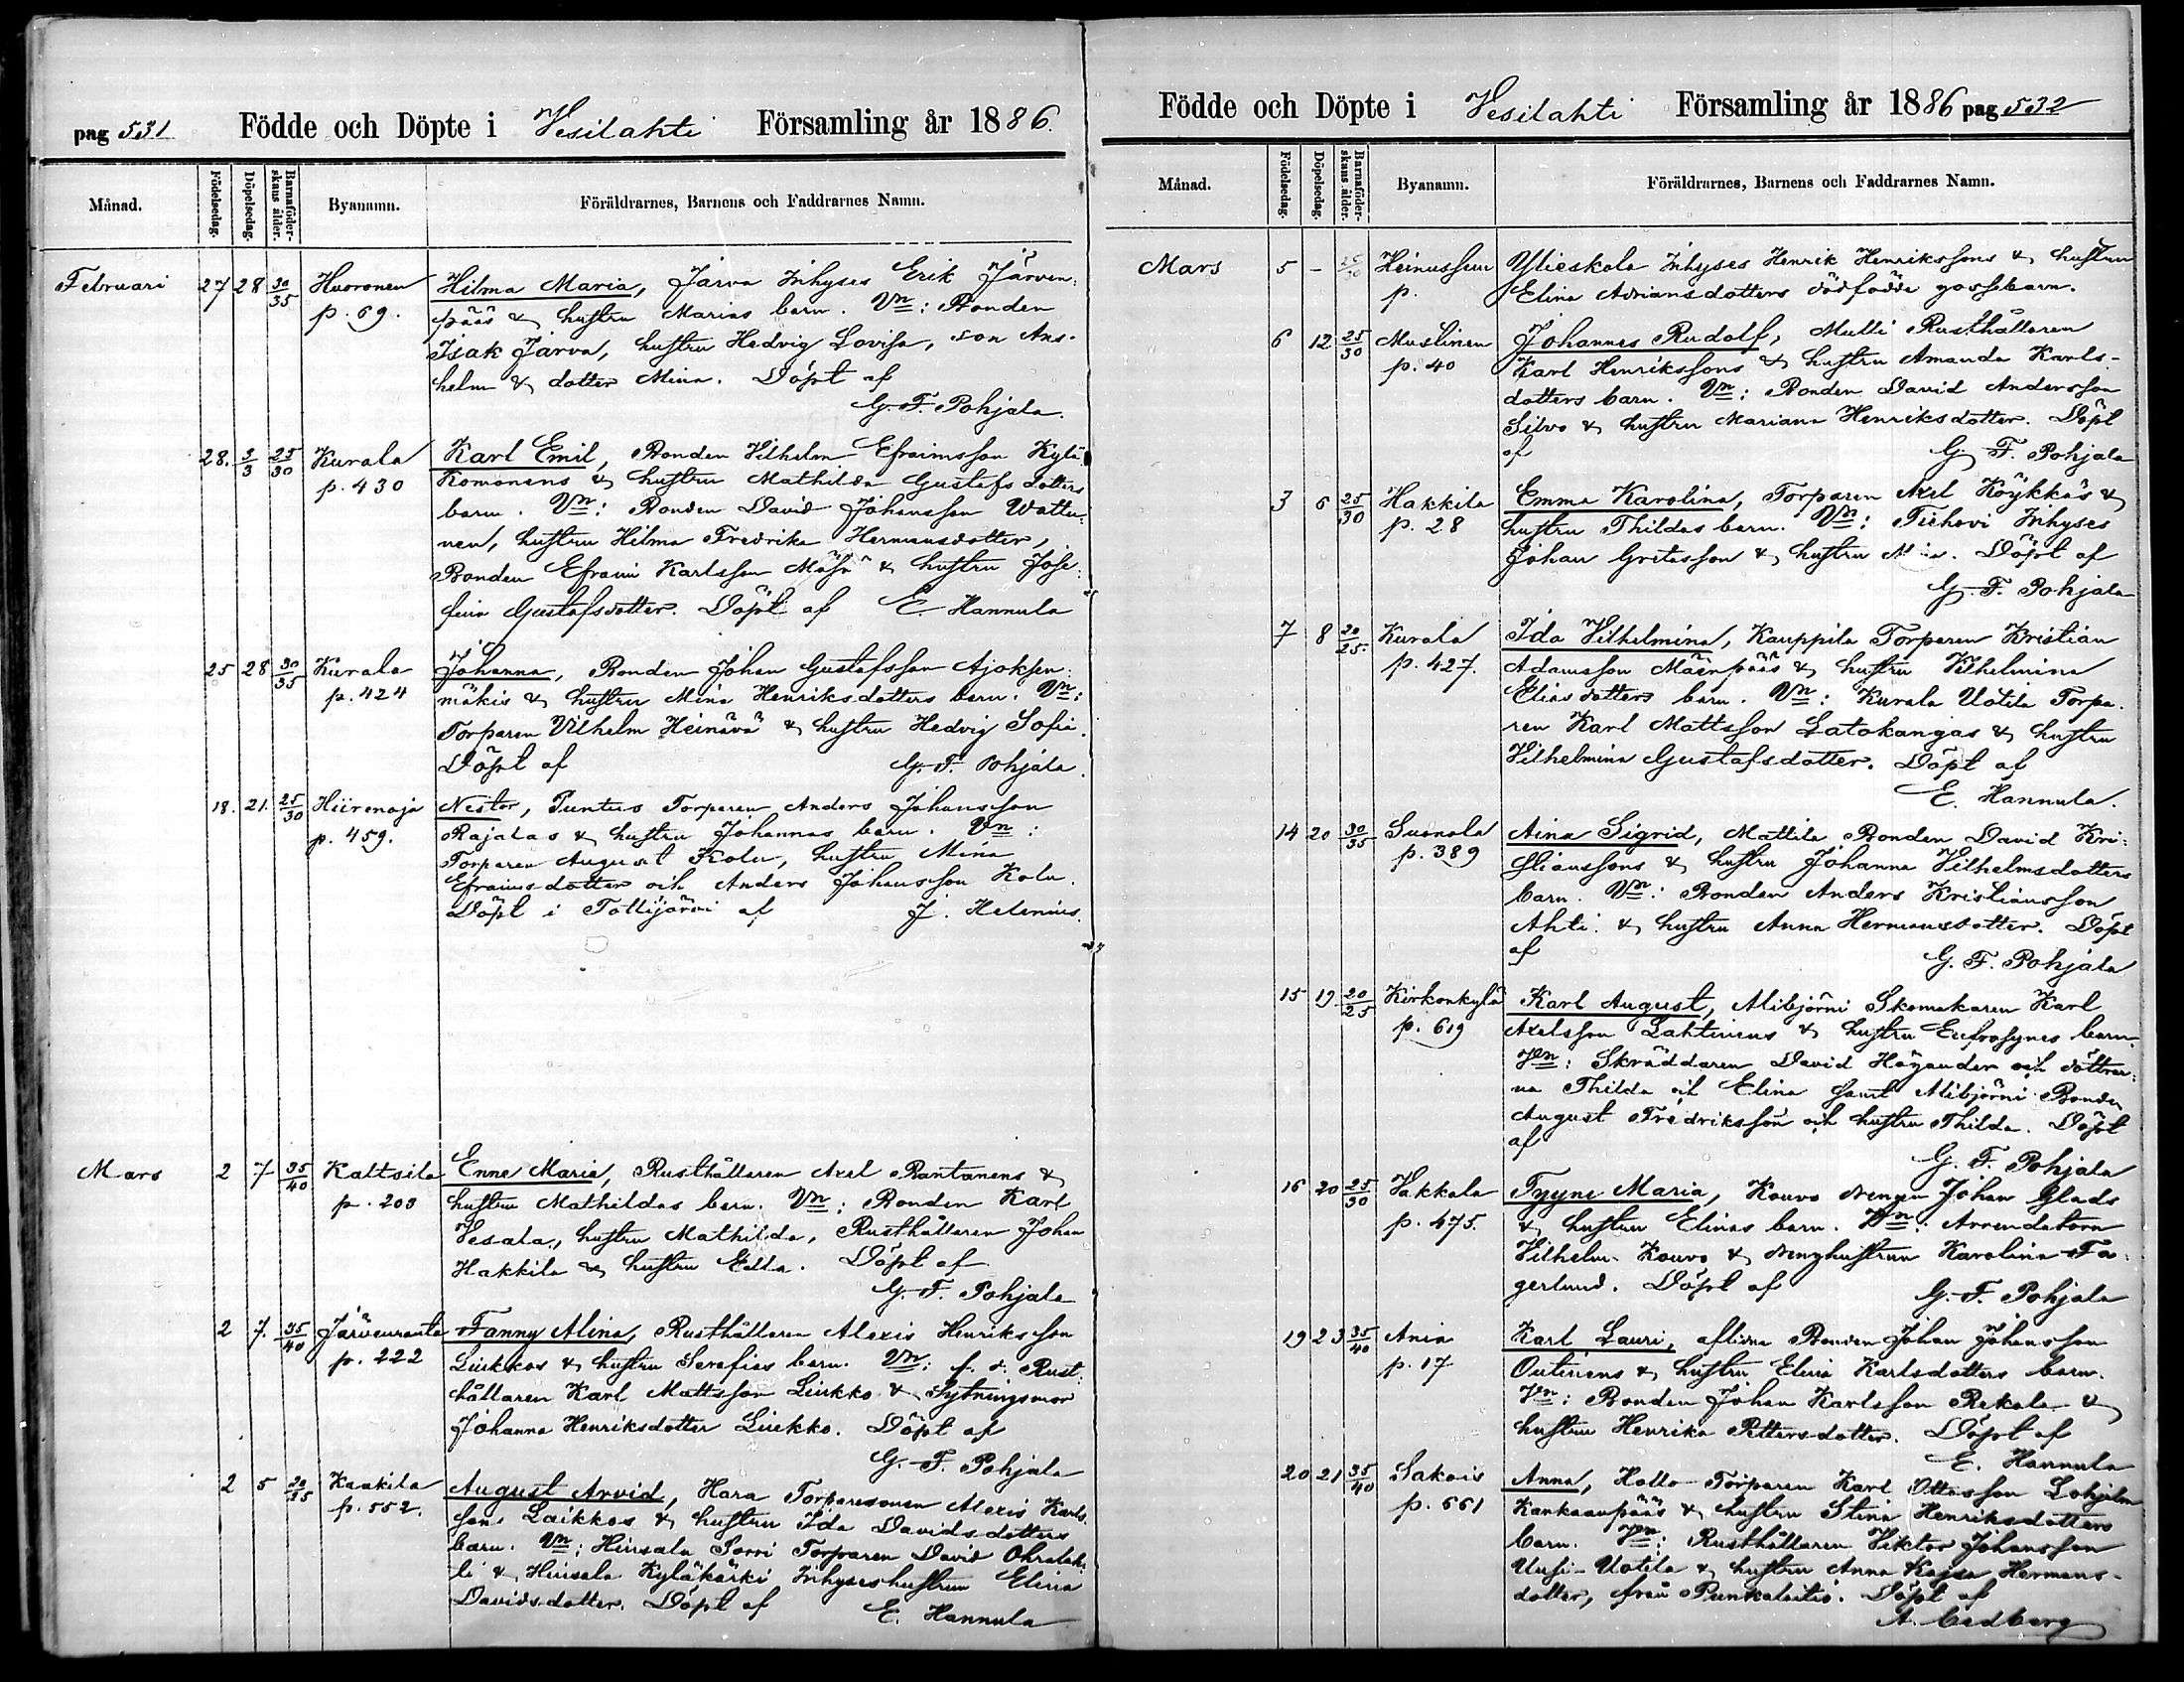 pag 531 Födde och Döpte i Vesilahti Församling år 1886.
Månad. Födelsedag. Döpelsedag. Barnaföderskans ålder. Byanamn. Föräldrarnes, Barnens och Faddrarnes Namn.
Februari 27 28 30/35 Huoronen Hilma Maria, Järva Inhyses Erik Järven-
p. 69. pääs & hustru Marias barn. Vn: Bonden
Isak Järva, hustru Hedvig Lovisa, son Ans-
helm & dotter Mina. Döpt af
G. F. Pohjala.
28. 3/3 25/30 Kurala Karl Emil, Bonden Vilhelm Efraimsson Kylä-
p. 430 Komonens & hustru Mathilda Gustafsdotters
barn. Vn: Bonden David Johansson Wattu-
nen, hustru Hilma Fredrika Hermansdotter,
Bonden Efraim Karlsson & hustru Jose-
fina Gustafsdotter. Döpt af E. Hannula
25 28 30/35 Kurala Johanna, Bonden Johan Gustafsson Ajoksen-
p. 424 mäkis & hustru Mina Henriksdotters barn. Vn:
Torparen Vilhelm Heinävä & hustru Hedvig Sofia.
Döpt af G. F. Pohjala.
18. 21. 25/30 Hiirenoja Nestor, Puntus Torparen Anders Johansson
p. 459. Rajalas & hustru Johannas barn. Vn:
Torparen August Kolu, hustru Mina
Efraimsdotter och Anders Johansson Kolu.
Döpt i Tottijärvi af J. Helenius.
Mars 2 7 35/40 Kaltsila Enne Maria, Rusthållaren Axel Rantanens &
p. 203 hustru Mathildas barn. Vn: Bonden Karl
Vesala, hustru Mathilda, Rusthållaren Johan
Hakkila & hustru Edla. Döpt af
G. F. Pohjala
2 7. 35/40 Järvenranta Fanny Alina, Rusthållaren Alexis Henriksson
p. 222 Liukkos & hustru Serafias barn. Vn: f. d. Rust-
hållaren Karl Mattsson Liukko & Sytningsmor
Johanna Henriksdotter Liukko. Döpt af
G. F. Pohjala
2 5 Kaakila August Arvid, Hara Torparesonen Alexis Karls-
p. 552. sons Laikkos & hustru Ida Davidsdotters
barn. Vn: Hinsala Torparen David
& Hinsala Kyläkärki Inhyseshustrun Elina
Davidsdotter. Döpt af E. Hannula
Födde och Döpte i Vesilahti Församling år 1886 pag 532
Månad. Födelsedag. Döpelsedag. Barnaföderskans ålder. Byanamn. Föräldrarnes, Barnens och Faddrarnes Namn.
Mars 5 - 25/30 Heinussuu Ylieskola Inhyses Henrik Henrikssons & hustrun
p. Elina Adriansdotters dödfödde gossebarn.
6 12 25/30 Muslinen Johannes Rudolf, Mulli Rusthållaren
p. 40 Karl Henrikssons & hustru Amanda Karls-
dotters barn. Vn: Bonden David Andersson
Silvo & hustru Mariana Henriksdotter. Döpt
af G. F. Pohjala
3 6 25/30 Hakkila Emma Karolina, Torparen Axel Köykkäs &
p. 28 hustru Thildas barn. Vn: Inhyses
Johan & hustru Döpt af
G. F. Pohjala
7 8 20/25. Kurala Ida Vilhelmina, Kauppila Torparen Kristian
p. 427. Adamsson Mäenpääs & hustru Vilhelmina
Eliasdotters barn. Vn: Kurala Uotila Torpa-
ren Karl Mattsson Latokangas & hustru
Vilhelmina Gustafsdotter. Döpt af
E. Hannula.
14 20 30/35 Suonola Aina Sigrid, Mattila Bonden David Kri-
p. 389 stianssons & hustru Johanna Vilhelmsdotters
barn. Vn: Bonden Anders Kristiansson
Ahti. & hustru Anna Hermansdotter. Döpt
af G. F. Pohjala
15 19 20/25 Kirkonkylä Karl August, Alibjörni Skomakaren Karl
p. 619 Axelsson Lahtinens & hustru Eufrosynes barn.
Vn: Skräddaren David Höyander och döttrar-
na Thilda och Elina samt Alibjörni Bonden
August Fredriksson och hustru Thilda. Döpt
af G. F. Pohjala
16 20 25/30 Vakkala Tyyne Maria, Kouvo drengen Johan Glads
p. 475. & hustru Elinas barn. Vn: Arrendatorn
Vilhelm Kouvo & drenghustrun Karolina Fa-
gerlund. Döpt af G. F. Pohjala
19 23 35/40 Ania Karl Lauri, aflidne Bonden Johan Johansson
p. 17 Outinens & hustru Elina Karlsdotters barn.
Vn: Bonden Johan Karlsson Rekola &
hustru Henrika Pettersdotter. Döpt af
E. Hannula
20 21 35/40 Sakois Anna, Hollo Torparen Karl Ottosson Lohjelm
p. 661 Kankaanpääs & hustru Stina Henriksdotters
barn. Vn: Rusthållaren Viktor Johansson
Uusi-Uotila & hustru Anna Kajsa Hermans-
dotter, från Punkalaitio. Döpt af
A. Cedberg